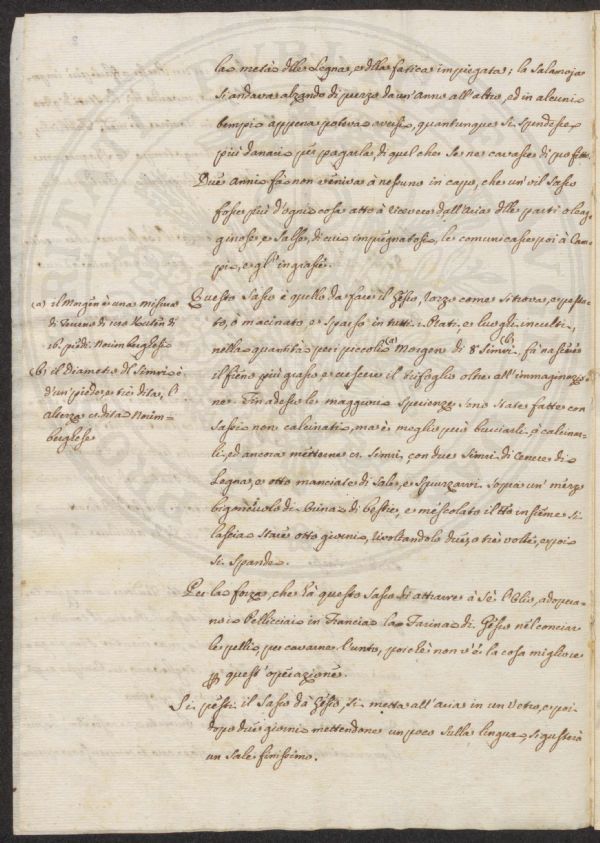 la metà delle Legna, e della fatica impiegata; la Salamoja
si andava alzando di prezzo da un'anno all'altro, ed in alcuni
tempi appena poteva aversi, quantunque si spendesse
più danaro per pagarla, di quel che se ne cavasse di profitto.
Due anni fà non veniva à nessuno in capo, che un vil Sasso
fosse più d'ogni cosa atto à ricevere dall'Aria delle parti oleag-
ginose, e Salse, di cui impregnatosi, le comunicasse poi à Cam-
pi, e gl'ingrassi.
Questo Sasso è quello da fare il Gesso, rozzo come si trova, e pesta-
to, ò macinato, e sparso in tutti i Prati, e luoghi inculti,
nella quantità per i piccoli (a) Morgen di 8 Simri (b), fà nascere
il fieno più grasso, e crescere il trifoglio oltre all'immaginazio-
ne. Fin adesso le maggiori Sperienze sono state fatte con
Sassi non calcinati, ma è meglio però bruciarli, ò calcinar-
li, ed ancora metterne 12 Simri, con due Simri di Cenere di
Legna, e otto manciate di Sale, e Spruzzarvi sopra un mezzo
bigonciuolo di Orina di bestie, e mescolato il tto insieme si
lascia stare otto giorni, rivoltandolo due, o trè volte, e poi
si spande.
Per la forza, che hà questo Sasso di attrarre à sè l'Olio, adopra-
no i Pellicciai in Francia la Farina di Gesso nel conciar
le pelli per cavarne l'unto, poichè non v'è la cosa migliore
p quest'operazione.
Si pesti il Sasso da Gesso, si metta all'aria in un Vetro, e poi
dopo due giorni mettendone un poco sulla lingua, si gusterà
un Sale finissimo.
(a) il Morgen è una misura
di Terreno di 100 Routen di
16 piedi Norimberghesi
(b) il diametro del Simri è
d'un piede, e tre dita, l'
altezza 11 dita Norim-
berghesi